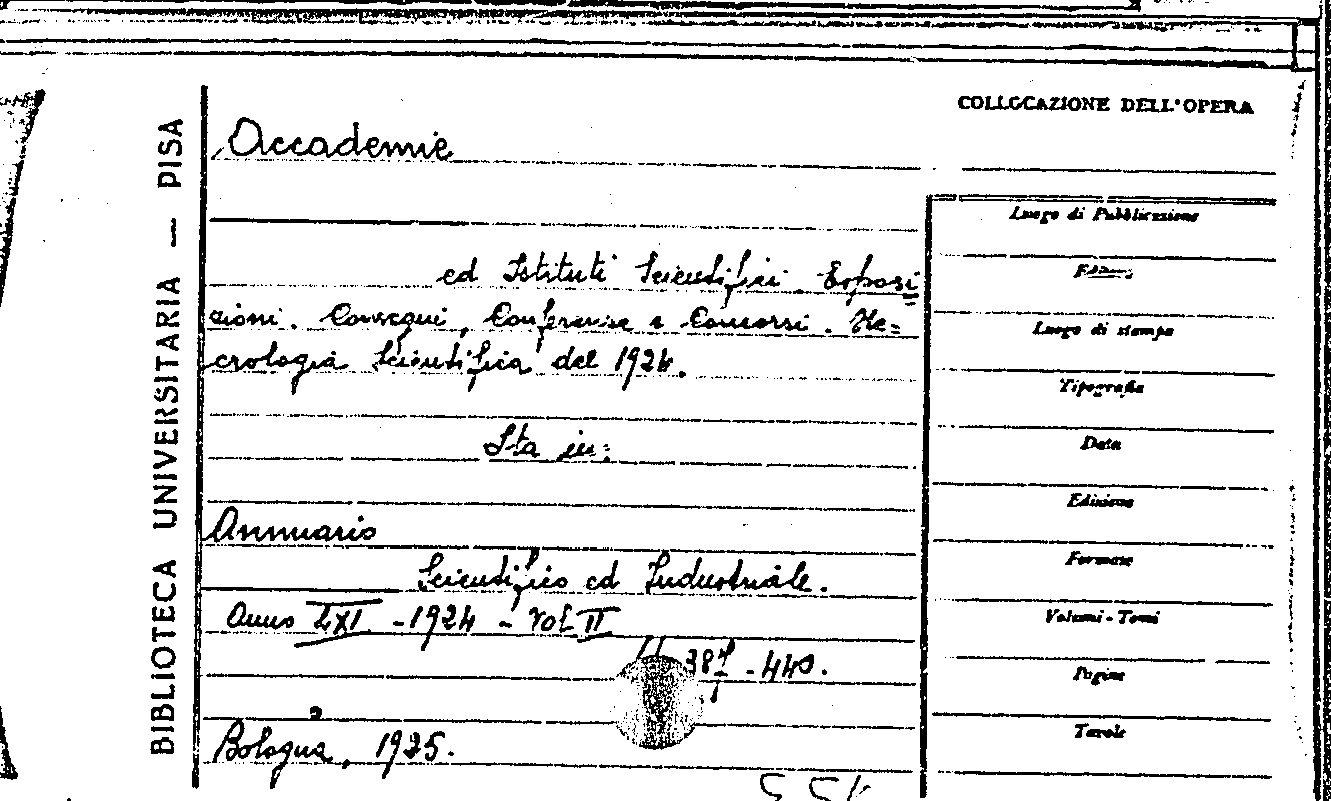 COLLOCAZIONE DELL'OPERA
BIBLIOTECA UNIVERSITARIA — PISA
Accademie
ed Istituti Scientifici. Esposi=
zioni. Convegni, Conferenze e Concorsi. Ne=
crologia Scientifica del 1924.
Sta in:
Annuario
Scientifico ed Industriale.
Anno LXI - 1924 - Vol. II
- 440.
Bologna, 1925.
Luogo di Pubblicazione
Luogo di stampa
Tipografia
Data
Edizione
Formato
Volumi - Tomi
Pagine
Tavole